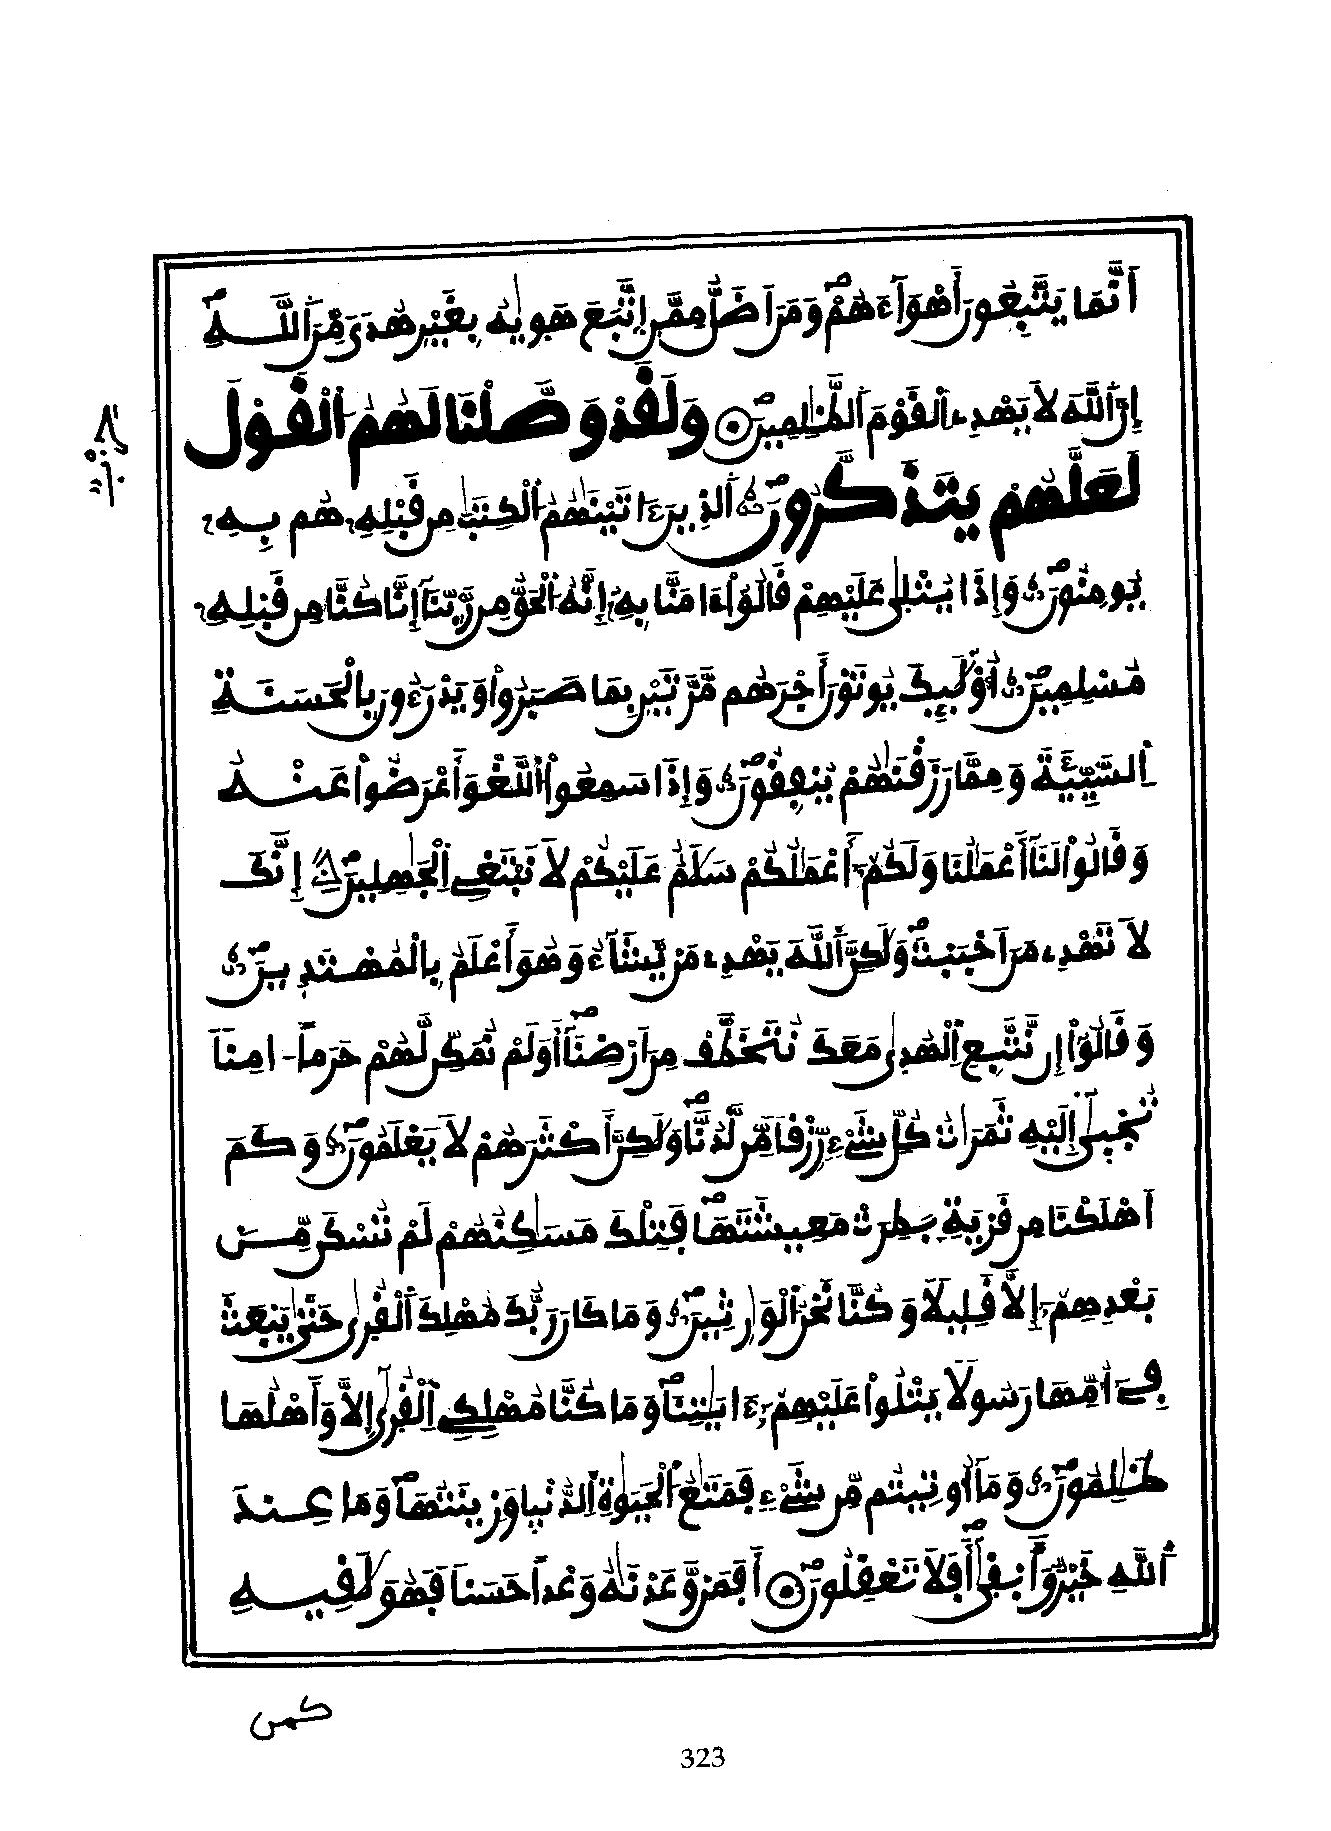 أَنَّمَا يَتَّبِعُونَ أَهْوَآءَهُمْ وَمَنَ اَضَلُّ مِمَّنِ إِتَّبَعَ هَوِيٰهُ بِغَيْرِ هُدىً مِّنَ اَللَّهِ
إِنَّ اَللَّهَ لَا يَهْدِے اِلْقَوْمَ اَلظَّٰلِمِينَ وَلَقَدْ وَصَّلْنَا لَهُمُ اُلْقَوْلَ
لَعَلَّهُمْ يَتَذَكَّرُونَ اَلذِينَ ءَاتَيْنَٰهُمُ اُلْكِتَٰبَ مِن قَبْلِهِۦ هُم بِهِۦ
يُومِنُونَ وَإِذَا يُتْلِىٰ عَلَيْهِمْ قَالُوٓاْ ءَامَنَّا بِهِۦٓ إِنَّهُ اُلْحَقُّ مِن رَّبِّنَآ إِنَّا كُنَّا مِن قَبْلِهِۦ
مُسْلِمِينَ أُوْلَٰٓئِكَ يُوتَوْنَ أَجْرَهُم مَّرَّتَيْنِ بِمَا صَبَرُواْ وَيَدْرَءُونَ بِالْحَسَنَةِ
اِلسَّيِّئَةَ وَمِمَّا رَزَقْنَٰهُمْ يُنفِقُونَ وَإِذَا سَمِعُواْ اُللَّغْوَ أَعْرَضُواْ عَنْهُ
وَقَالُواْ لَنَآ أَعْمَٰلُنَا وَلَكُمُۥٓ أَعْمَٰلُكُمْ سَلَٰمٌ عَلَيْكُمْ لَا نَبْتَغِى اِلْجَٰهِلِينَ إِنَّكَ
لَا تَهْدِے مَنَ اَحْبَبْتَ وَلَٰكِنَّ اَللَّهَ يَهْدِے مَنْ يَّشَآءُ وَهُوَ أَعْلَمُ بِالْمُهْتَدِينَ
وَقَالُوٓاْ إِن نَّتَّبِعِ اِلْهُدِىٰ مَعَكَ نُتَخَطَّفْ مِنَ اَرْضِنَآ أَوَلَمْ نُمَكِّن لَّهُمْ حَرَماً اٰمِناً
تُجْبِىٰٓ إِلَيْهِ ثَمَرَٰتُ كُلِّ شَےْءٍ رِّزْقاً مِّن لَّدُنَّا وَلَٰكِنَّ أَكْثَرَهُمْ لَا يَعْلَمُونَ وَكَمَ
اَهْلَكْنَا مِن قَرْيَةِۭ بَطِرَتْ مَعِيشَتَهَا فَتِلْكَ مَسَٰكِنُهُمْ لَمْ تُسْكَن مِّنۢ
بَعْدِهِمُۥٓ إِلَّا قَلِيلًا وَكُنَّا نَحْنُ اُلْوَٰرِثِينَ وَمَا كَانَ رَبُّكَ مُهْلِكَ اَلْقُرِىٰ حَتَّىٰ يَبْعَثَ
فِےٓ أُمِّهَا رَسُولًا يَتْلُواْ عَلَيْهِمُۥٓ ءَايَٰتِنَا وَمَا كُنَّا مُهْلِكِى اِلْقُرِىٰٓ إِلَّا وَأَهْلُهَا
ظَٰلِمُونَ وَمَآ أُوتِيتُم مِّن شَےْءٍ فَمَتَٰعُ اُلْحَيَوٰةِ اِلدُّنْيِا وَزِينَتُهَا وَمَا عِندَ
اَللَّهِ خَيْرٌ وَأَبْقِىٰٓ أَفَلَا تَعْقِلُونَ أَفَمَنْ وَّعَدْنَٰهُ وَعْداً حَسَناً فَهُوَ لَٰقِيهِ
كمن
323